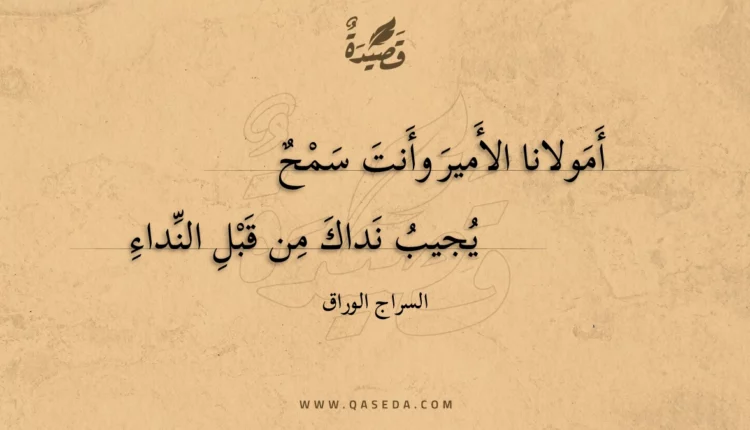 قَصِيدَةٌ
أَمَولانا الأَميرَ وأَنتَ سَمْحٌ
يُجيبُ نَداكَ مِن قَبْلِ النِّداءِ
السراج الوراق
WWW.QASEDA.COM